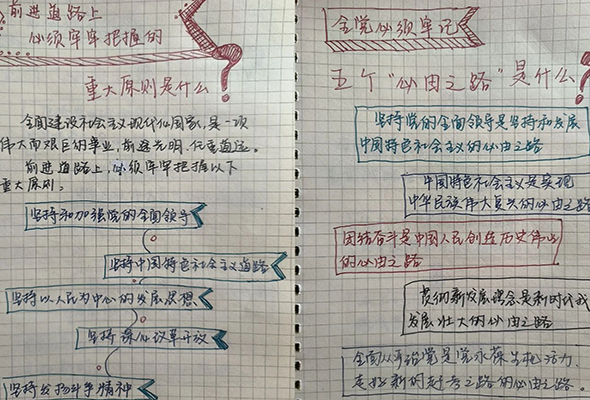 前进道路上
必须牢牢把握的
重大原则是什么?
全面建设社会主义现代化国家,是一项
伟大而艰巨的事业,前途光明,任重道远。
前进道路上,必须牢牢把握以下
重大原则:
坚持和加强党的全面领导
坚持中国特色社会主义道路
坚持以人民为中心的发展思想
坚持深化改革开放
坚持发扬斗争精神
全党必须牢记
五个“必由之路”是什么?
坚持党的全面领导是坚持和发展
中国特色社会主义的必由之路
中国特色社会主义是实现
中华民族伟大复兴的必由之路
团结奋斗是中国人民创造历史伟业
的必由之路
贯彻新发展理念是新时代我
发展壮大的必由之路
全面从严治党是党永葆生机活力、
走好新的赶考之路的必由之路。